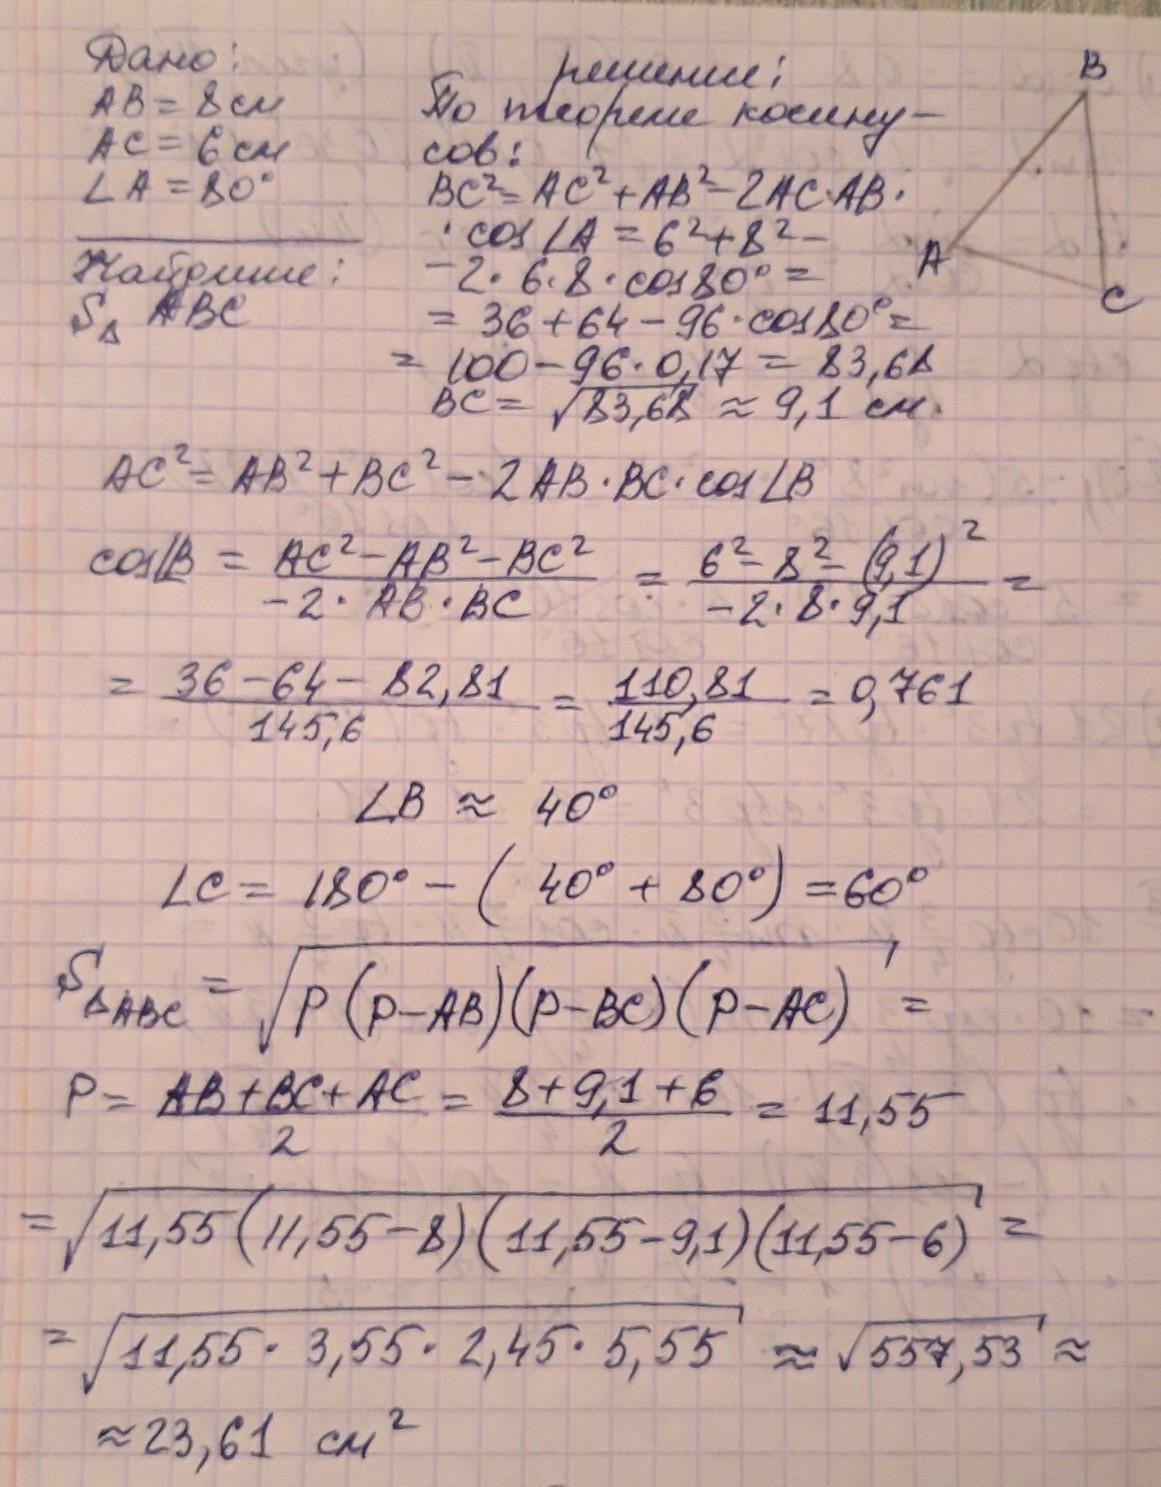 Дано:
AB = 8 см
AC = 6 см
∠A = 80°
Найдите:
S△ ABC
решение:
По теореме косину-
сов:
BC² = AC² + AB² - 2AC·AB·
· cos∠A = 6² + 8² -
- 2·6·8·cos80° =
= 36 + 64 - 96·cos80° =
= 100 - 96·0,17 = 83,68
BC = √83,68 ≈ 9,1 см.
B
A
C
AC² = AB² + BC² - 2AB·BC·cos∠B
cos∠B = (AC² - AB² - BC²) / (-2·AB·BC) = (6² - 8² - (9,1)²) / (-2·8·9,1) =
= (36 - 64 - 82,81) / 145,6 = 110,81 / 145,6 = 0,761
∠B ≈ 40°
∠C = 180° - (40° + 80°) = 60°
S△ABC = √(P(P-AB)(P-BC)(P-AC)) =
P = (AB + BC + AC) / 2 = (8 + 9,1 + 6) / 2 = 11,55
= √(11,55(11,55-8)(11,55-9,1)(11,55-6)) =
= √(11,55·3,55·2,45·5,55) ≈ √557,53 ≈
≈ 23,61 см²